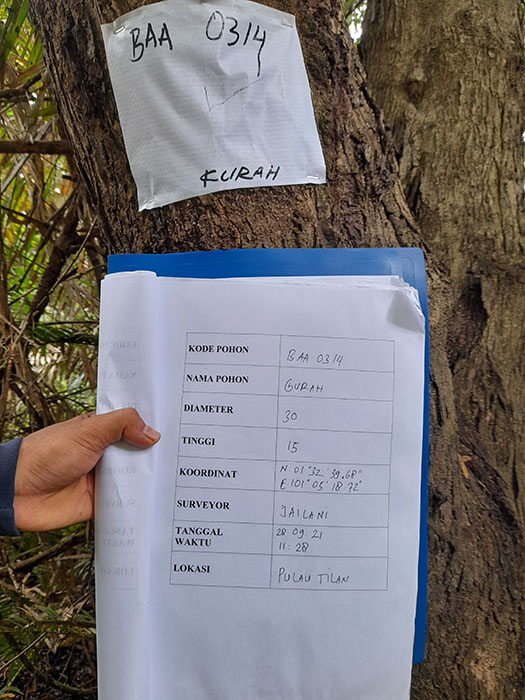 BAA 0314
KURAH
KODE POHON BAA 0314
NAMA POHON GURAH
DIAMETER 30
TINGGI 15
KOORDINAT N 01°32'39.68"
E 101°05'18.72"
SURVEYOR JAILANI
TANGGAL 28 09 21
WAKTU 11:28
LOKASI PULAU TILAN